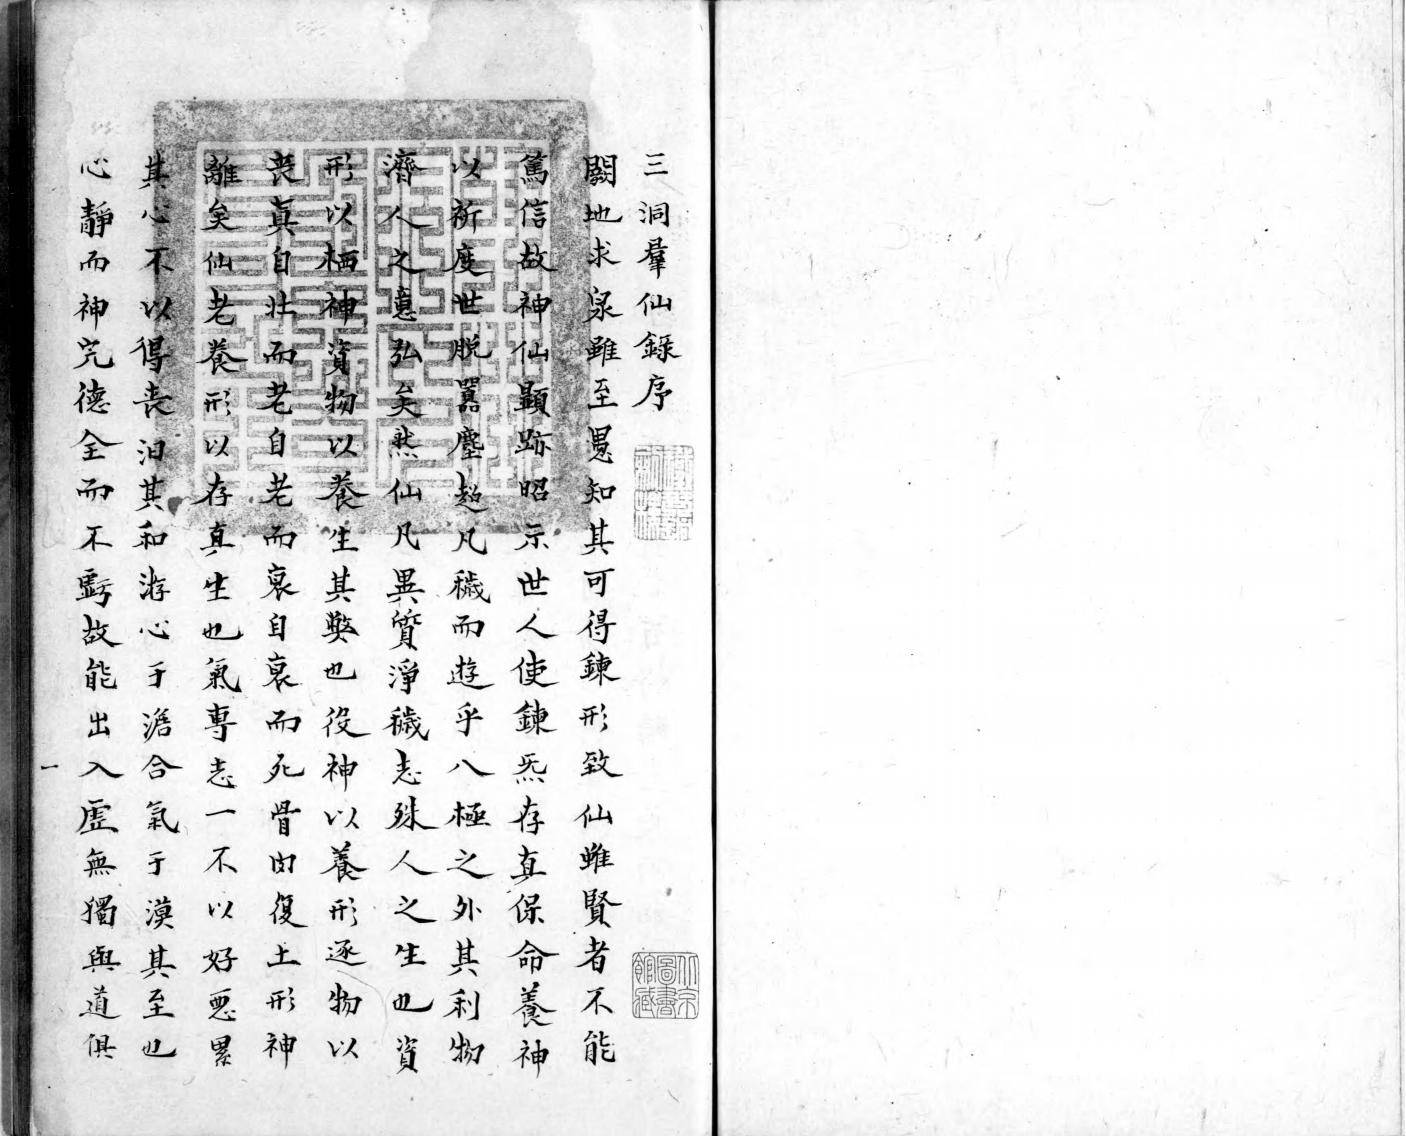 三洞羣仙錄序
闕地求泉雖至愚知其可得鍊形致仙雖賢者不能
篤信故神仙顯跡昭示世人使鍊炁存真保命養神
以祈度世脫囂塵超凡穢而遊乎八極之外其利物
濟人之意弘矣然仙凡異質淨穢志殊人之生也資
形以栖神資物以養生其弊也役神以養形逐物以
丧真自壮而老自老而衰自衰而死骨肉復土形神
離矣仙老養形以存真生也氣專志一不以好惡累
其心不以得丧汩其和游心于澹合氣于漠其至也
心靜而神完德全而不虧故能出入虛無獨與道俱
一